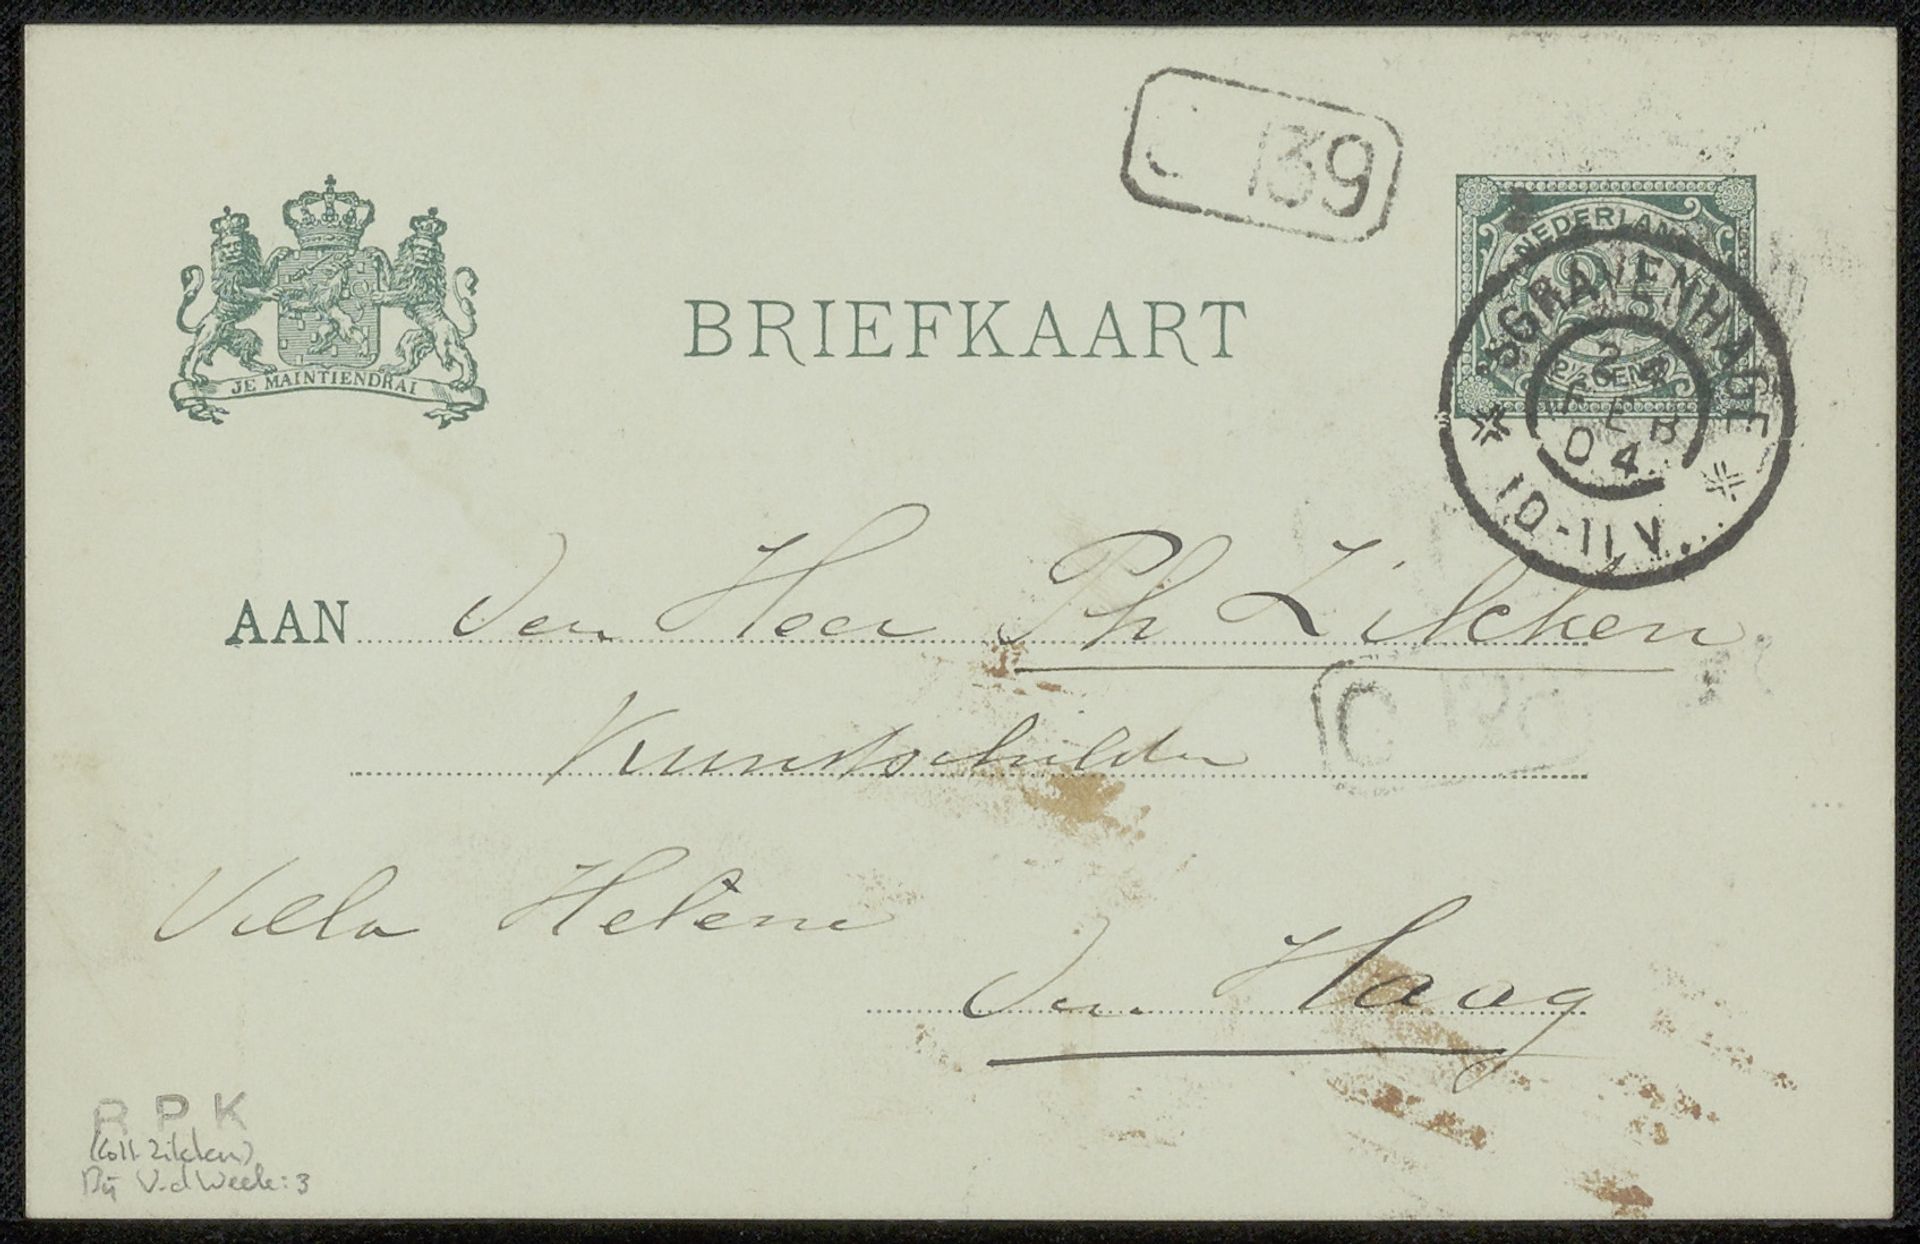 C 139
NEDERLAND
2½
2½ CENT
'SGRAVENHAGE
24
FEB
04
10-11V.
JE MAINTIENDRAI
BRIEFKAART
AAN Den Heer Ph Zilcken
C
Kunstschilder
Villa Helène
Den Haag
R P K
(Coll. Zilcken)
3